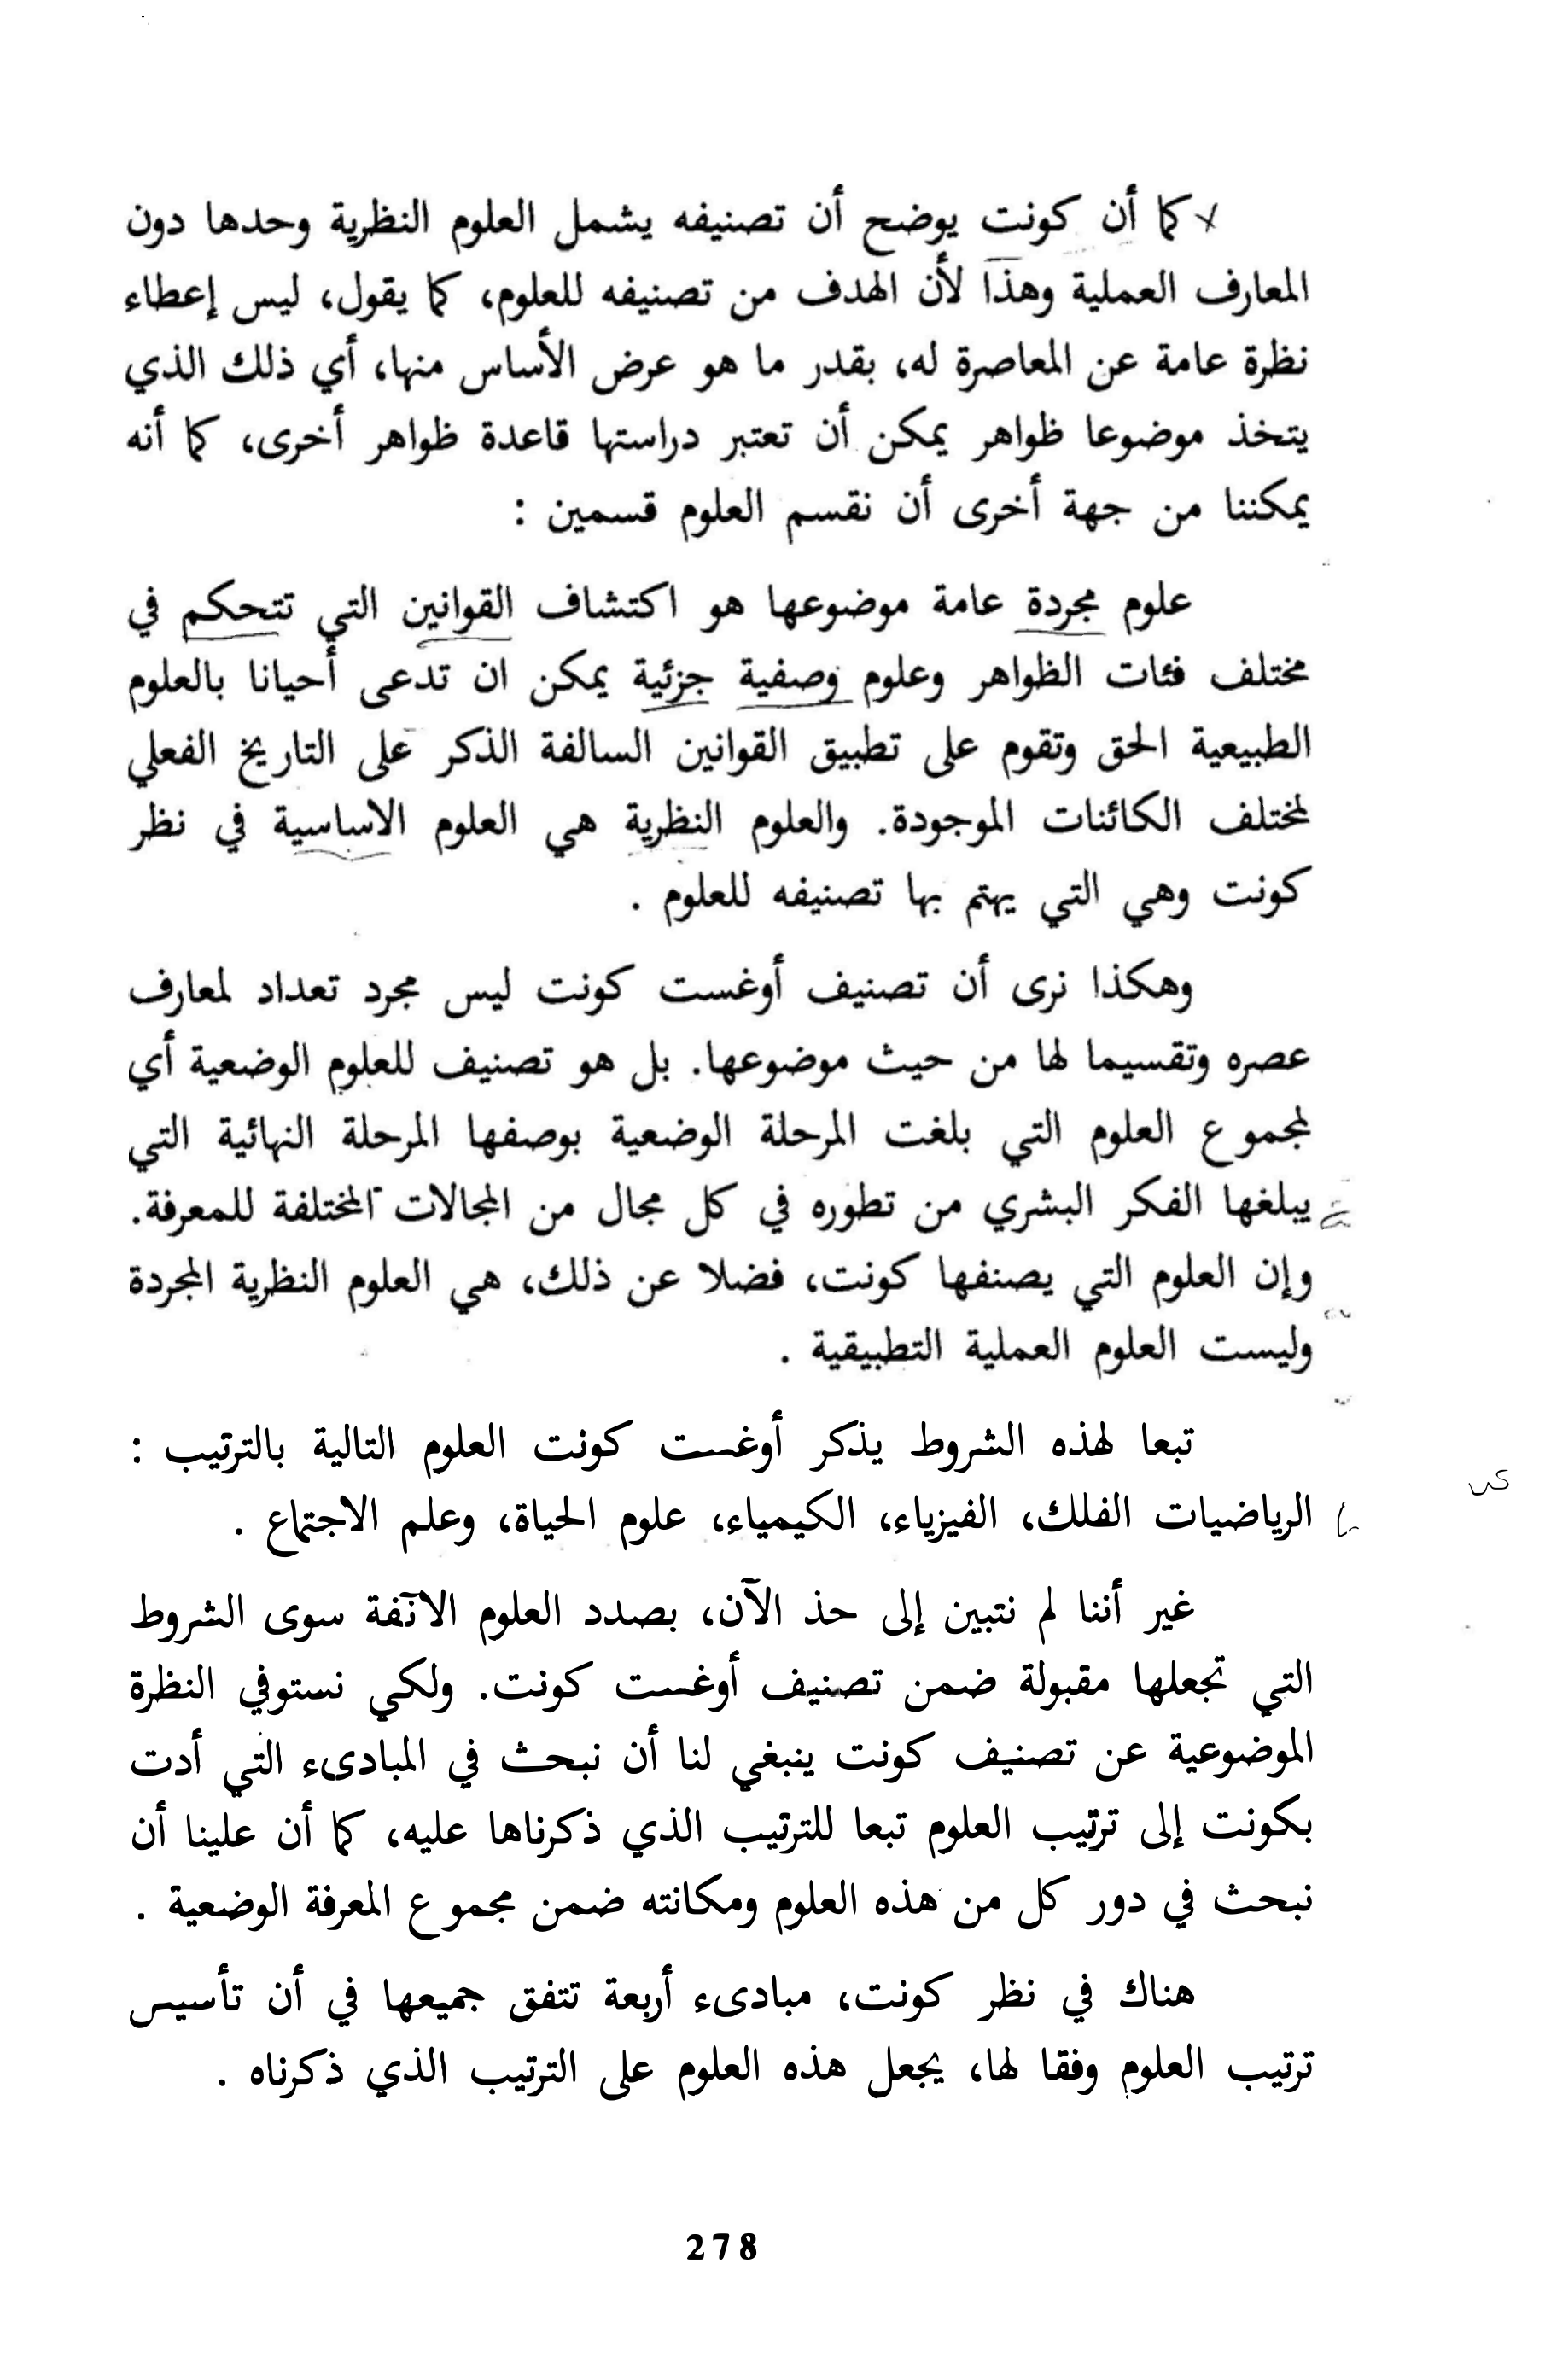 كما أن كونت يوضح أن تصنيفه يشمل العلوم النظرية وحدها دون
المعارف العملية وهذا لأن الهدف من تصنيفه للعلوم، كما يقول، ليس إعطاء
نظرة عامة عن المعاصرة له، بقدر ما هو عرض الأساس منها، أي ذلك الذي
يتخذ موضوعا ظواهر يمكن أن تعتبر دراستها قاعدة ظواهر أخرى، كما أنه
يمكننا من جهة أخرى أن نقسم العلوم قسمين :
علوم مجردة عامة موضوعها هو اكتشاف القوانين التي تتحكم في
مختلف فئات الظواهر وعلوم وصفية جزئية يمكن ان تدعى أحيانا بالعلوم
الطبيعية الحق وتقوم على تطبيق القوانين السالفة الذكر على التاريخ الفعلي
لمختلف الكائنات الموجودة. والعلوم النظرية هي العلوم الاساسية في نظر
كونت وهي التي يهتم بها تصنيفه للعلوم .
وهكذا نرى أن تصنيف أوغست كونت ليس مجرد تعداد لمعارف
عصره وتقسيما لها من حيث موضوعها. بل هو تصنيف للعلوم الوضعية أي
لمجموع العلوم التي بلغت المرحلة الوضعية بوصفها المرحلة النهائية التي
يبلغها الفكر البشري من تطوره في كل مجال من المجالات المختلفة للمعرفة.
وإن العلوم التي يصنفها كونت، فضلا عن ذلك، هي العلوم النظرية المجردة
وليست العلوم العملية التطبيقية .
تبعا لهذه الشروط يذكر أوغست كونت العلوم التالية بالترتيب :
الرياضيات الفلك، الفيزياء، الكيمياء، علوم الحياة، وعلم الاجتماع .
غير أننا لم نتبين إلى حذ الآن، بصدد العلوم الآنفة سوى الشروط
التي تجعلها مقبولة ضمن تصنيف أوغست كونت. ولكي نستوفي النظرة
الموضوعية عن تصنيف كونت ينبغي لنا أن نبحث في المبادىء التي أدت
بكونت إلى ترتيب العلوم تبعا للترتيب الذي ذكرناها عليه، كما أن علينا أن
نبحث في دور كل من هذه العلوم ومكانته ضمن مجموع المعرفة الوضعية .
هناك في نظر كونت، مبادىء أربعة تتفق جميعها في أن تأسيس
ترتيب العلوم وفقا لها، يجعل هذه العلوم على الترتيب الذي ذكرناه .
278